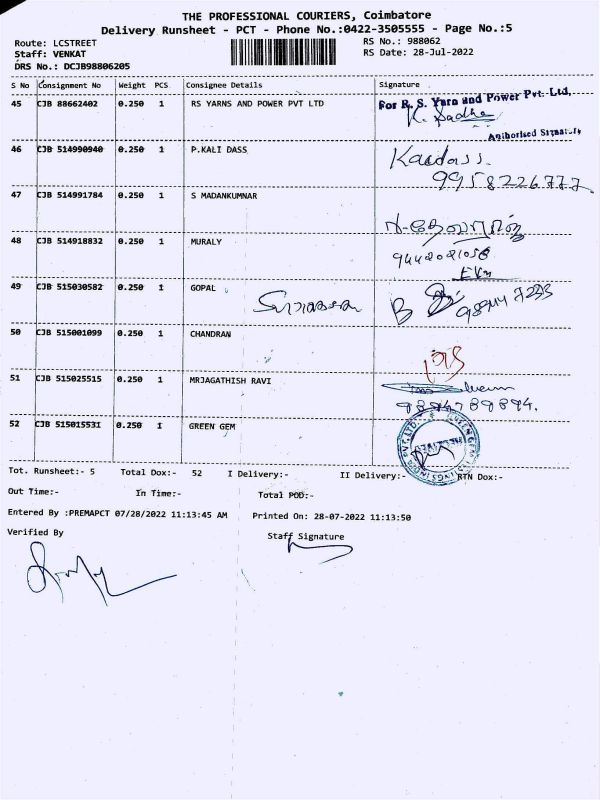 THE PROFESSIONAL COURIERS, Coimbatore
Delivery Runsheet - PCT - Phone No.:0422-3505555 - Page No.:5
Route: LCSTREET
RS No.: 988062
Staff: VENKAT
RS Date: 28-Jul-2022
DRS No.: DCJB98806205
S No Consignment No Weight PCS Consignee Details Signature
45 CJB 88662402 0.250 1 RS YARNS AND POWER PVT LTD
For R. S. Yarn and Power Pvt. Ltd,
K. Sadha
Authorised Signat
46 CJB 514990940 0.250 1 P.KALI DASS
9958226777
47 CJB 514991784 0.250 1 S MADANKUMNAR
48 CJB 514918832 0.250 1 MURALY
49 CJB 515030582 0.250 1 GOPAL
50 CJB 515001099 0.250 1 CHANDRAN
51 CJB 515025515 0.250 1 MRJAGATHISH RAVI
9894789894.
52 CJB 515015531 0.250 1 GREEN GEM
Tot. Runsheet:- 5 Total Dox:- 52 I Delivery:- II Delivery:- RTN Dox:-
Out Time:- In Time:- Total POD:-
Entered By :PREMAPCT 07/28/2022 11:13:45 AM Printed On: 28-07-2022 11:13:50
Verified By Staff Signature